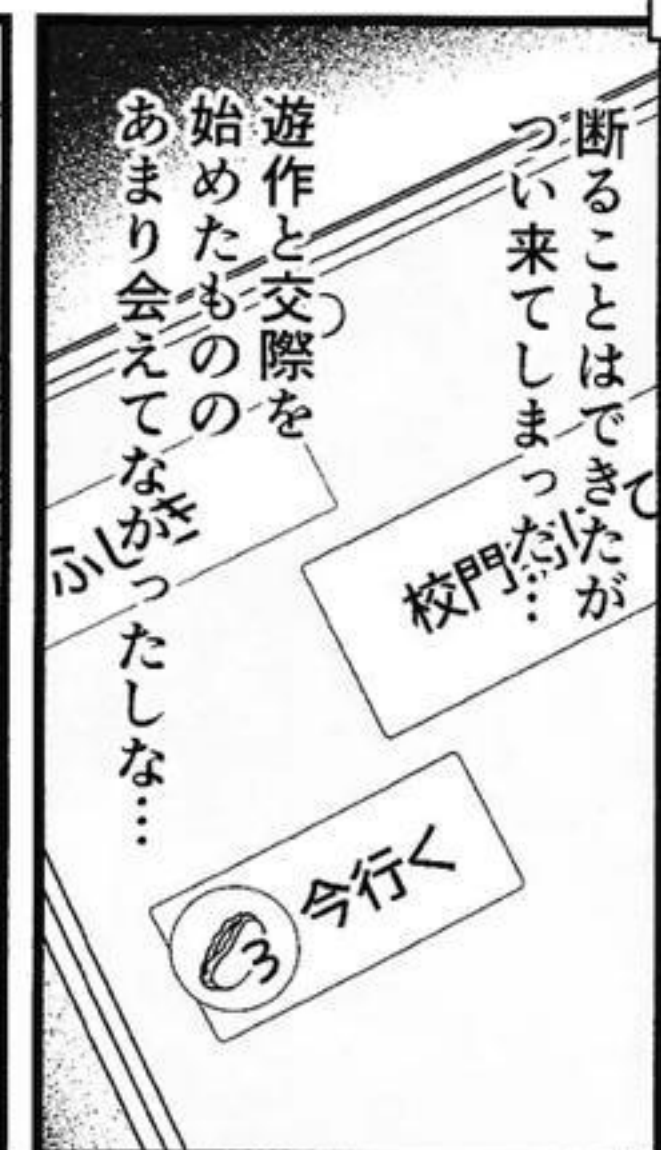 断ることはできたが
つい来てしまった…
遊作と交際を
始めたものの
あまり会えてなかったしな…
校門
ふしぎ
今行く